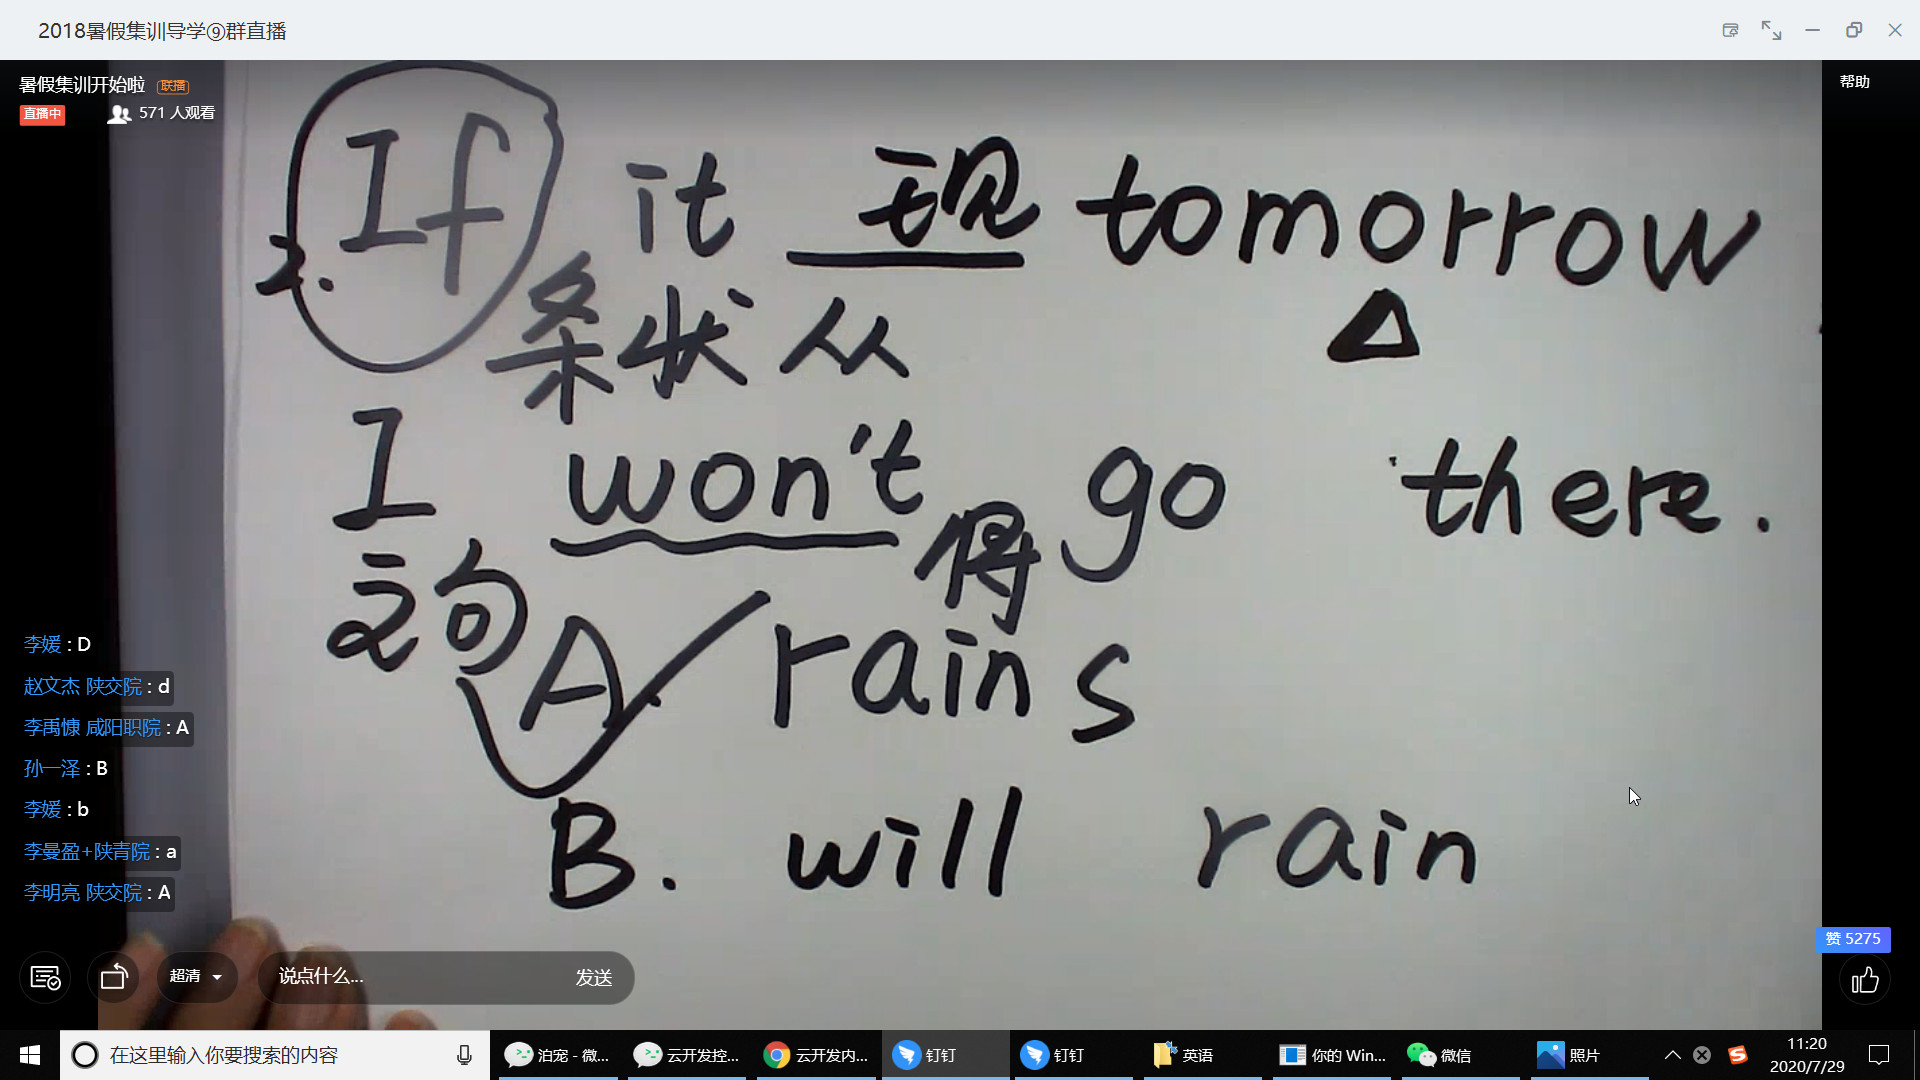 2018暑假集训导学⑨群直播
暑假集训开始啦 联播
帮助
直播中 571 人观看
2. If it 现 tomorrow
条状从
I won't go there.
主句 将
A. rains
B. will rain
李媛 : D
赵文杰 陕交院 : d
李禹慷 咸阳职院 : A
孙一泽 : B
李媛 : b
李曼盈+陕青院 : a
李明亮 陕交院 : A
赞 5275
超清 说点什么... 发送
在这里输入你要搜索的内容 泊宠 - 微... 云开发控... 云开发内... 钉钉 钉钉 英语 你的 Win... 微信 照片 11:20
2020/7/29